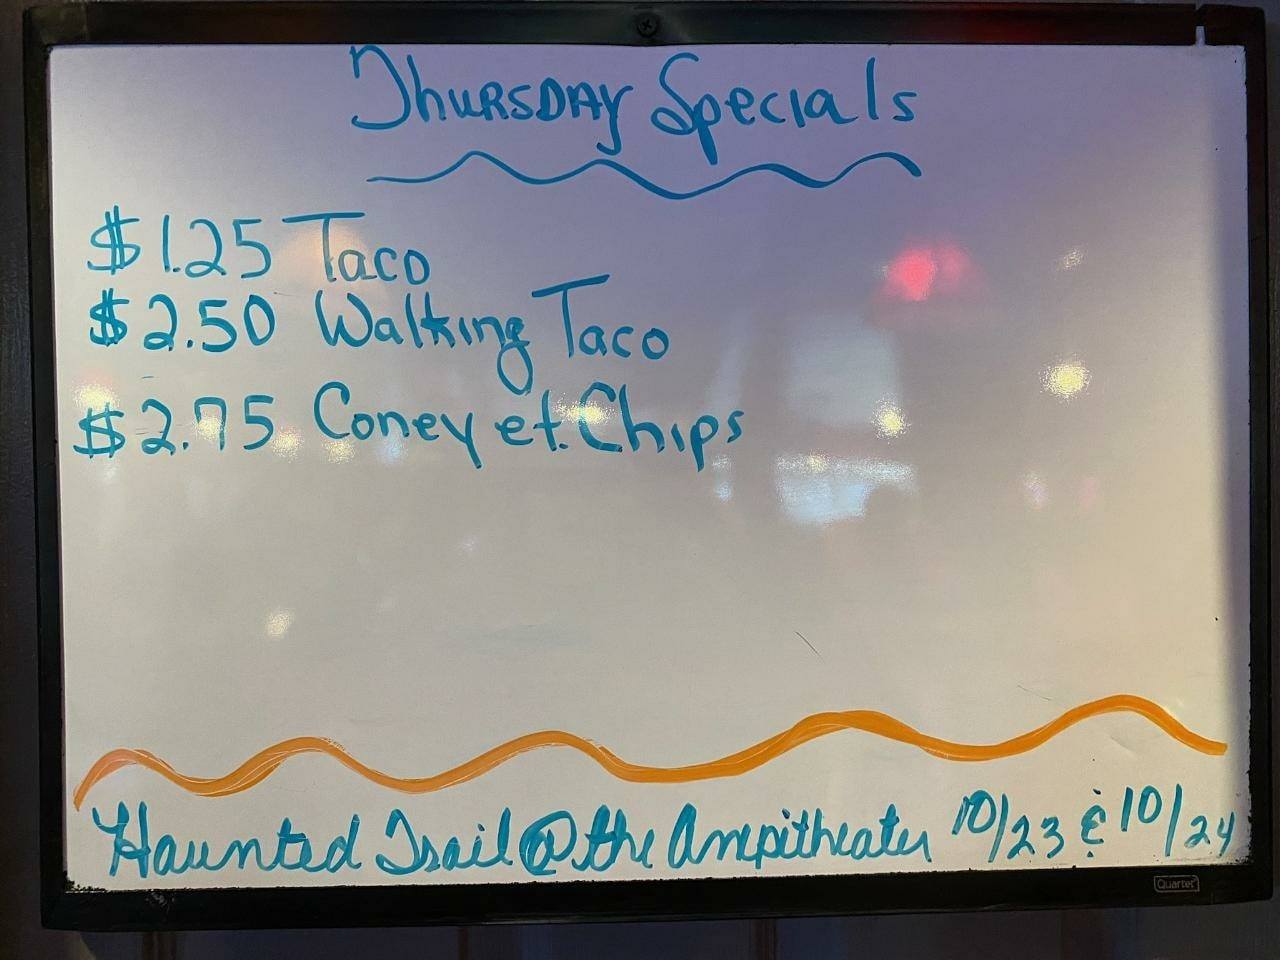 Thursday Specials
$1.25 Taco
$2.50 Walking Taco
$2.75 Coney et. Chips
Haunted Trail @ the Ampitheater 10/23 & 10/24
Quartet